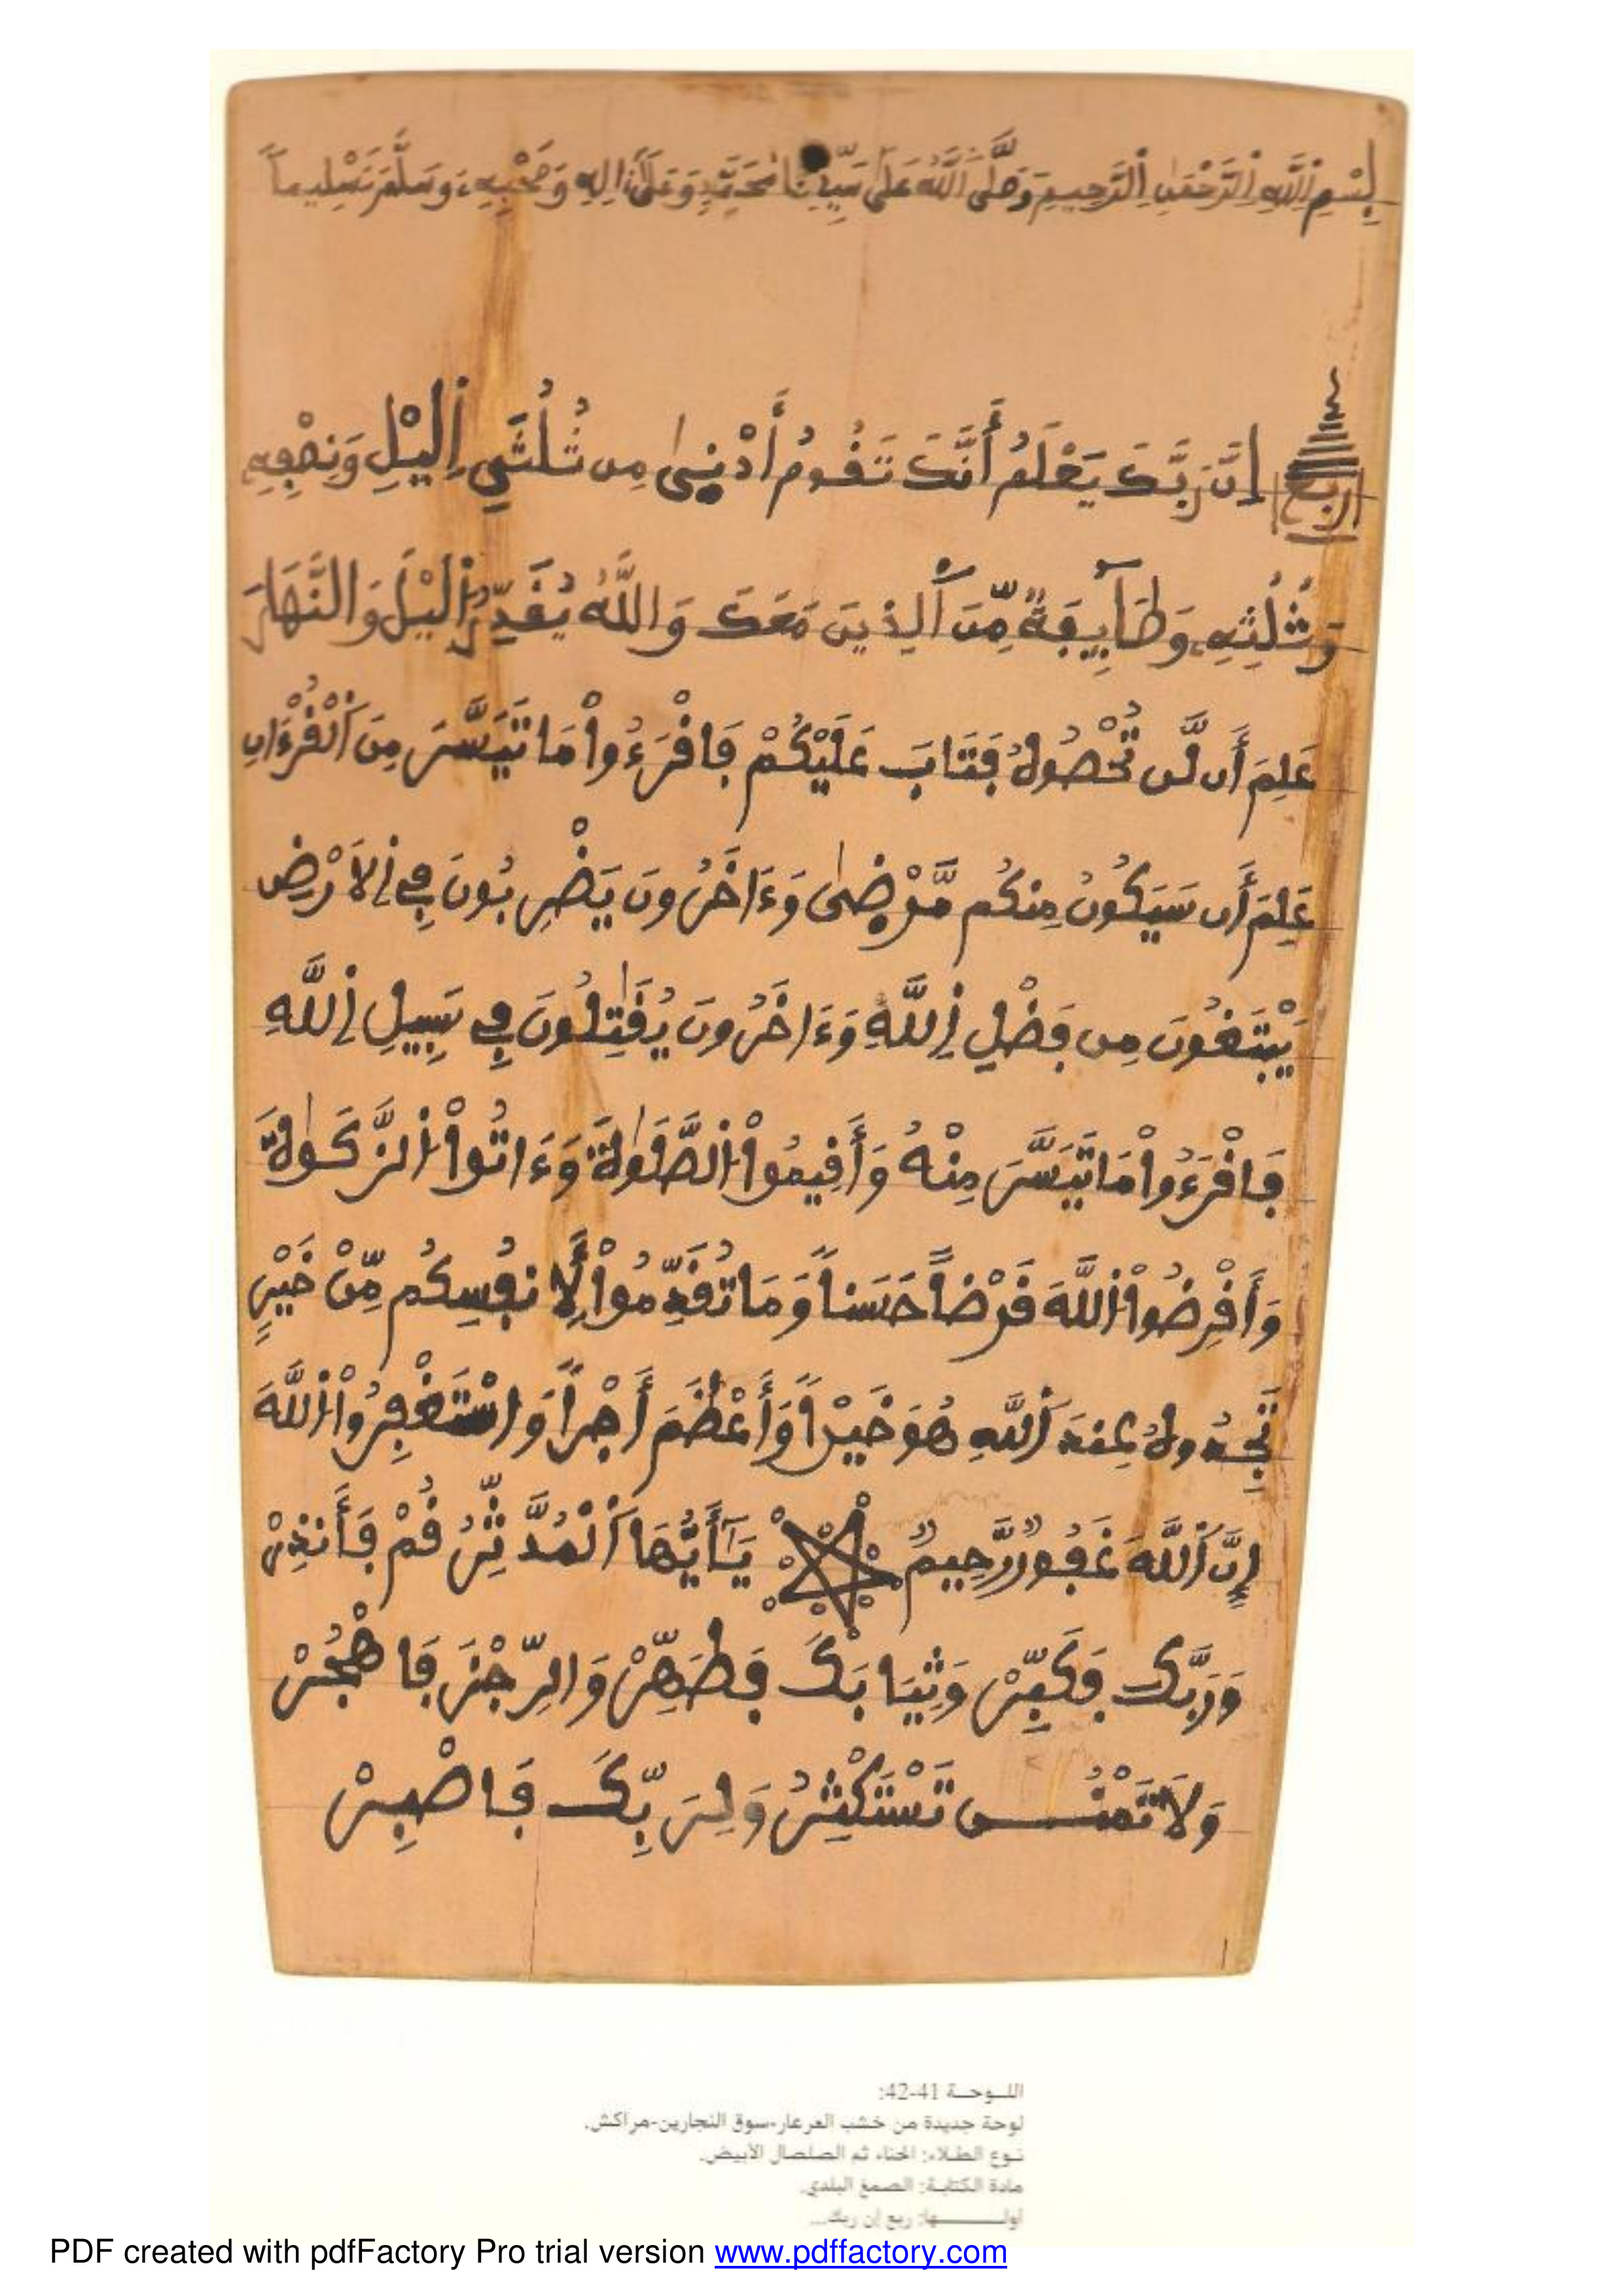 بِسْمِ اِللَّهِ اِلرَّحْمَٰنِ اِلرَّحِيمِ وَصَلَّى اَللَّهُ عَلَىٰ سَيِّدِنَا مُحَمَّدٍ وَعَلَىٰٓ ءَالِهِ وَصَحْبِهِۦ وَسَلَّمَ تَسْلِيماً
ربع إِنَّ رَبَّكَ يَعْلَمُ أَنَّكَ تَقُومُ أَدْنِىٰ مِن ثُلُثَيِ اِليْلِ وَنِصْفِهِ
وَثُلُثِهِۦ وَطَآئِفَةٌ مِّنَ اَلذِينَ مَعَكَ وَاللَّهُ يُقَدِّرُ اُليْلَ وَالنَّهَارَ
عَلِمَ أَن لَّن تُحْصُوهُ فَتَابَ عَلَيْكُمْ فَاقْرَءُواْ مَا تَيَسَّرَ مِنَ اَلْقُرْءَانِ
عَلِمَ أَن سَيَكُونُ مِنكُم مَّرْضِىٰ وَءَاخَرُونَ يَضْرِبُونَ فِي اِلَارْضِ
يَبْتَغُونَ مِن فَضْلِ اِللَّهِ وَءَاخَرُونَ يُقَٰتِلُونَ فِي سَبِيلِ اِللَّهِ
فَاقْرَءُواْ مَا تَيَسَّرَ مِنْهُ وَأَقِيمُواْ اُلصَّلَوٰةَ وَءَاتُواْ اُلزَّكَوٰةَ
وَأَقْرِضُواْ اُللَّهَ قَرْضاً حَسَناً وَمَا تُقَدِّمُواْ لِأَنفُسِكُم مِّنْ خَيْرٍ
تَجِدُوهُ عِندَ اَللَّهِ هُوَ خَيْراً وَأَعْظَمَ أَجْراً وَاسْتَغْفِرُواْ اُللَّهَ
إِنَّ اَللَّهَ غَفُورٌ رَّحِيمٌ يَٰٓأَيُّهَا اَلْمُدَّثِّرُ قُمْ فَأَنذِرْ
وَرَبَّكَ فَكَبِّرْ وَثِيَابَكَ فَطَهِّرْ وَالرِّجْزَ فَاهْجُرْ
وَلَا تَمْنُن تَسْتَكْثِرُ وَلِرَبِّكَ فَاصْبِرْ
اللـوحـة 41-42:
لوحة جديدة من خشب العرعار-سوق النجارين-مراكش.
نـوع الطـلاء: الحناء ثم الصلصال الأبيض.
مادة الكتابـة: الصمغ البلدي.
أولـــها: ربع إن ربك...
PDF created with pdfFactory Pro trial version www.pdffactory.com